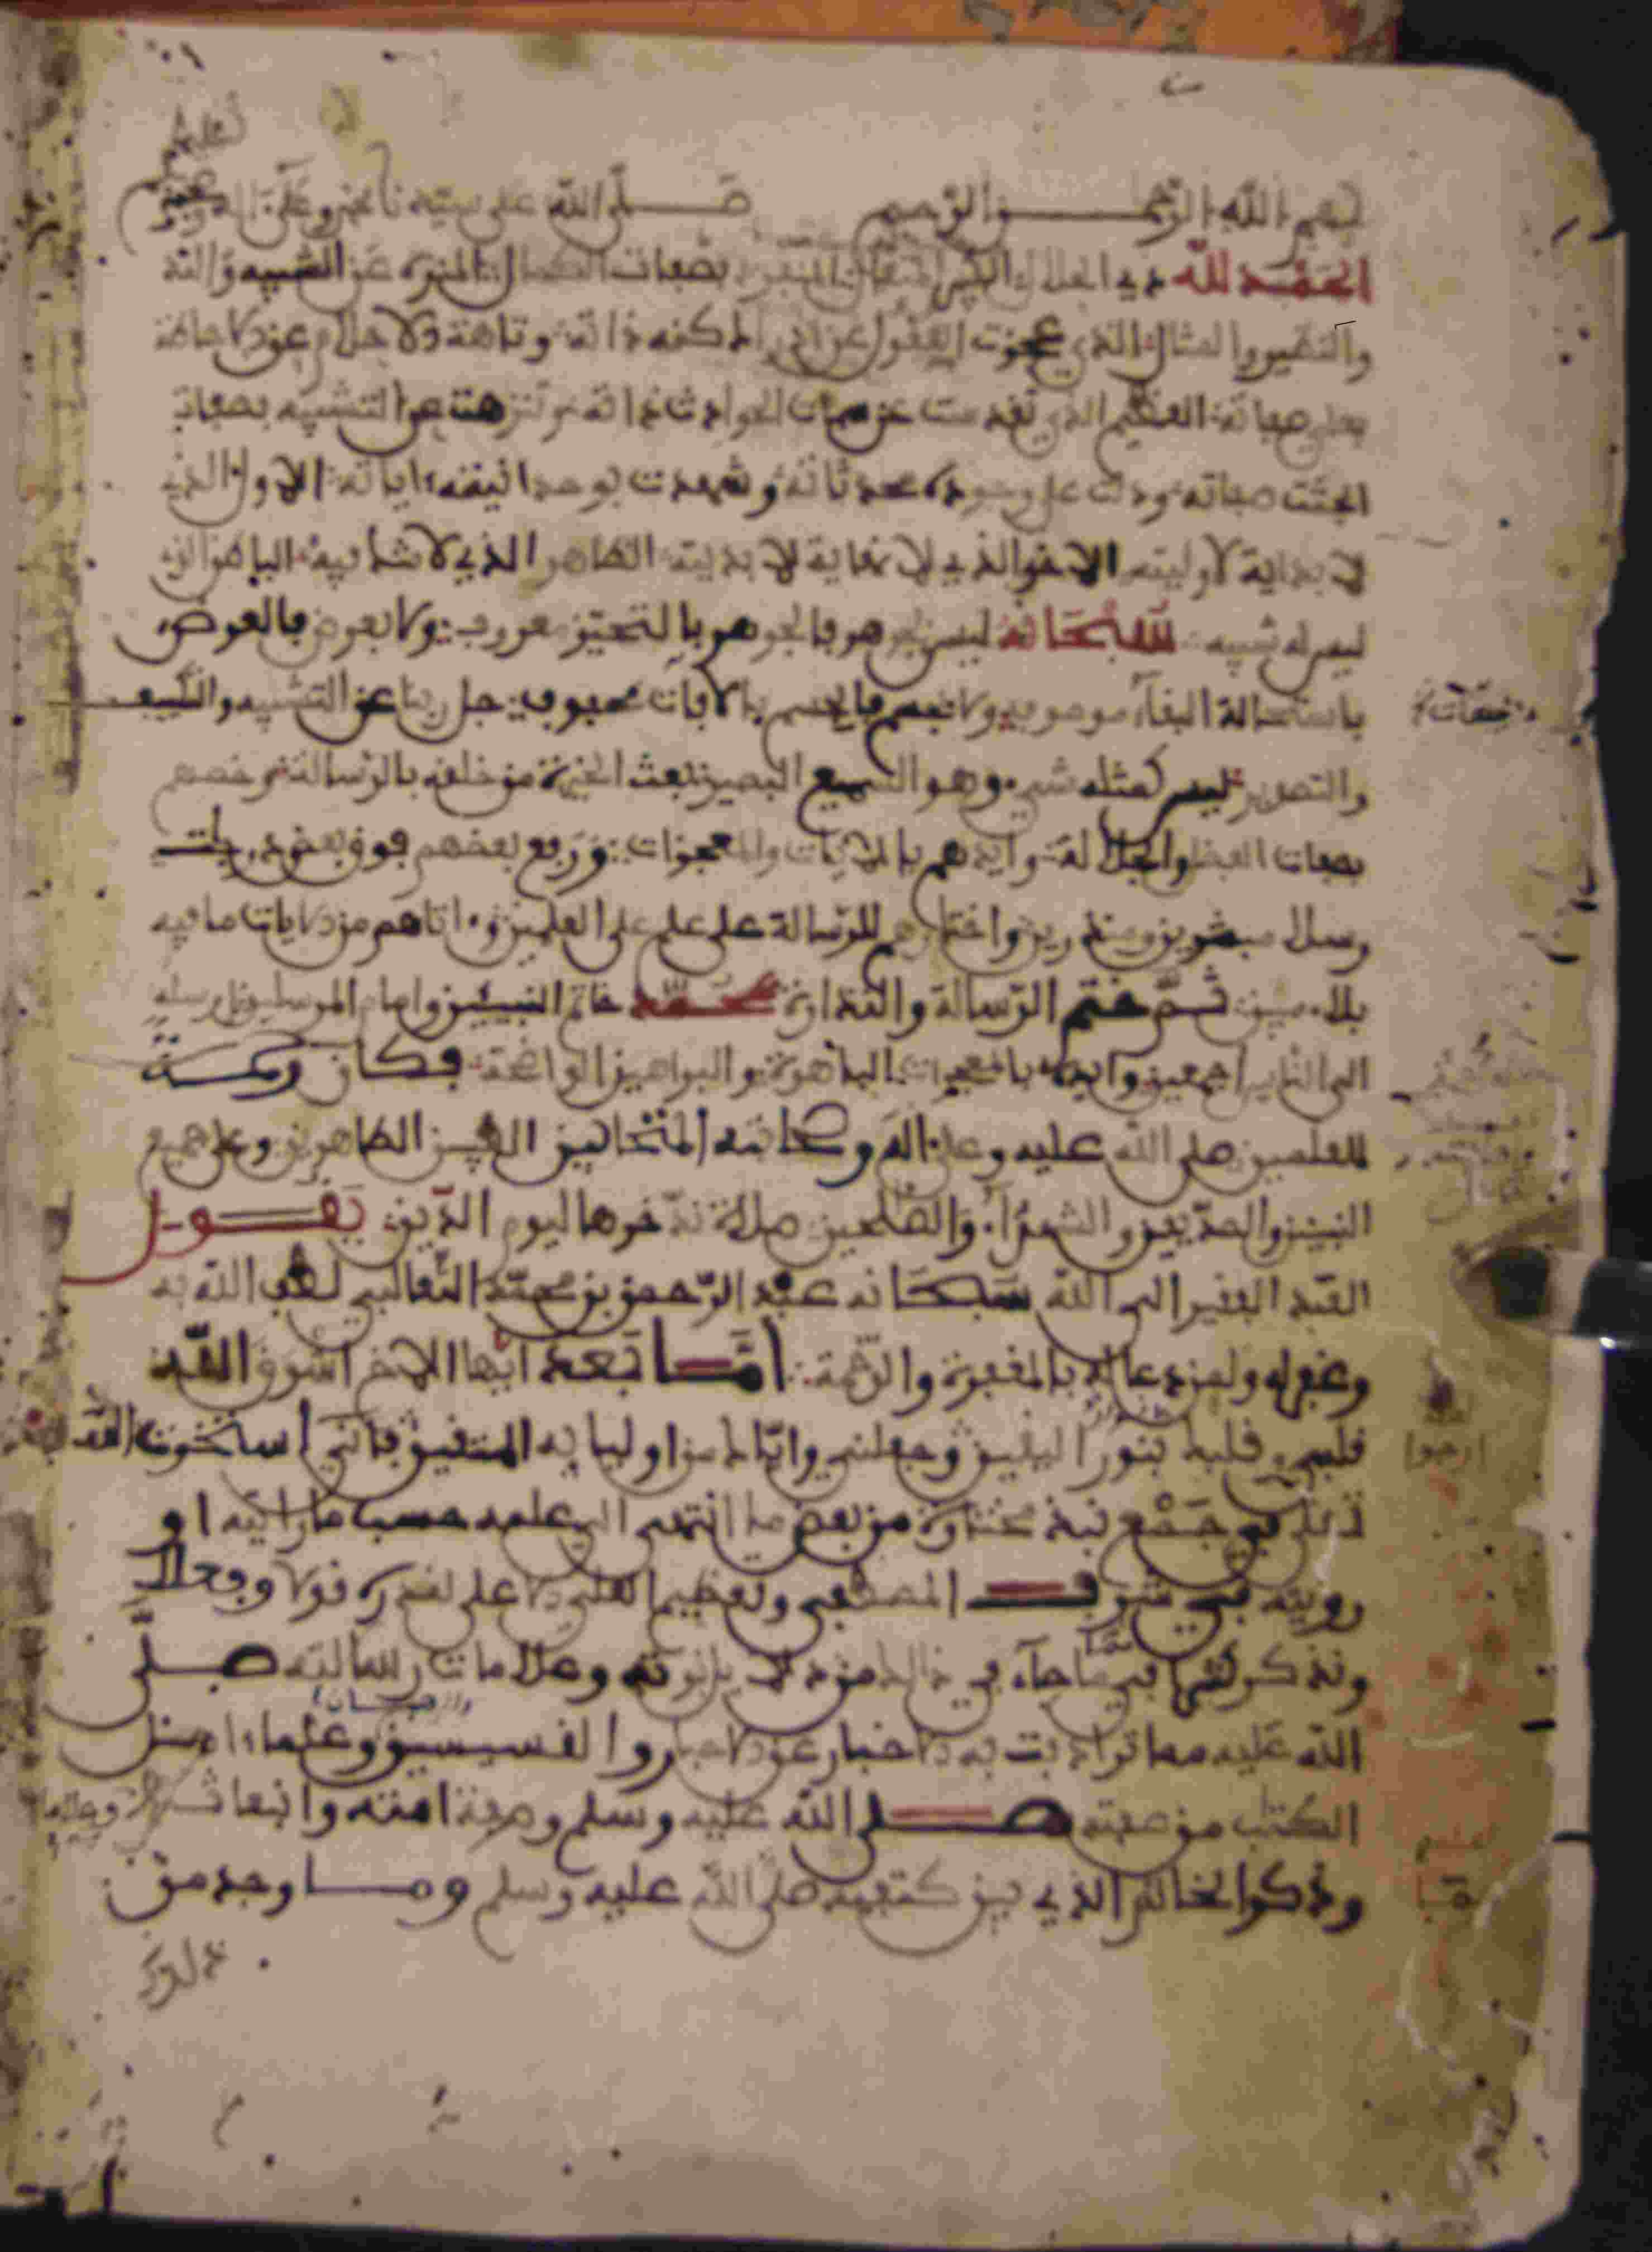 بسم الله الرحمن الرحيم صلى الله على سيدنا محمد وعلى آله وصحبه
الحمد لله ذي الجلال الكبير المتعال المنفرد بصفات الكمال المنزه عن الشبيه والند
والنظير والمثال الذي عجزت العقول عن ادراك كنه ذاته وتاهت الاحلام عن
صفاته العظيم الذي تقدست عن سمات الحوادث ذاته وتنزهت عن التشبيه بصفات
صفاته ودلت على وجوده محدثاته وشهدت بوحدانيته اياته الاول الذي
لا بداية لاوليته الاخر الذي لا نهاية لابديته الظاهر الذي لا شك فيه الباطن الذي
ليس له شبيه سبحانه ليس بجوهر فالجوهر بالتحيز معروف ولا بعرض فالعرض
باستحالة البقاء موصوف ولا بجسم فالجسم بالافات محفوف جل ربنا عن التشبيه والتكييف
والتصوير ليس كمثله شيء وهو السميع البصير بعث الخيرة من خلقه بالرسالة خصهم
بصفات الفضل والجلالة وايدهم بالايات والمعجزات ورفع بعضهم فوق بعض درجات
رسلا مبشرين ومنذرين واختارهم للرسالة على علم على العلمين واتاهم من الايات ما فيه
بلاء مبين ثم ختم الرسالة والنذارة بمحمد خاتم النبيين وامام المرسلين فارسله
الى الناس اجمعين وايده بالمعجزات الباهرة والبراهين الواضحة فكان رحمة
للعلمين صلى الله عليه وعلى اله وصحابته المنتخابين الطاهرين وعلى جميع
النبيين والصديقين والشهداء والصلحين صلاة ندخرها ليوم الدين يقول
العبد الفقير الى الله سبحانه عبد الرحمن بن محمد الثعالبي لطف الله به
وغفر له ولمن دعا له بالمغفرة والرحمة اما بعد ايها الاخ اشرق الله
قلبي وقلبك بنور اليقين وجعلني واياك من اوليايه المتقين فاني استخرت الله
تعلى في جمع نبذ مختارة من بعض ما انتهى الي علمه حسب ما رايته او
رويته في شرف المصطفى وتعظيم العلي الاعلى لقدره قولا وفعلا
ونذكر فيها ما جاء في ذلك من دلايل نبوته وعلامات رسالته صلى
الله عليه مما ترادفت به الاخبار عن الاحبار والقسيسين وعلماء اهل
والرهبان
الكتب من صفته صلى الله عليه وسلم وصفة امته
وذكر الخاتم الذي بين كتفيه صلى الله عليه وسلم وما وجد من